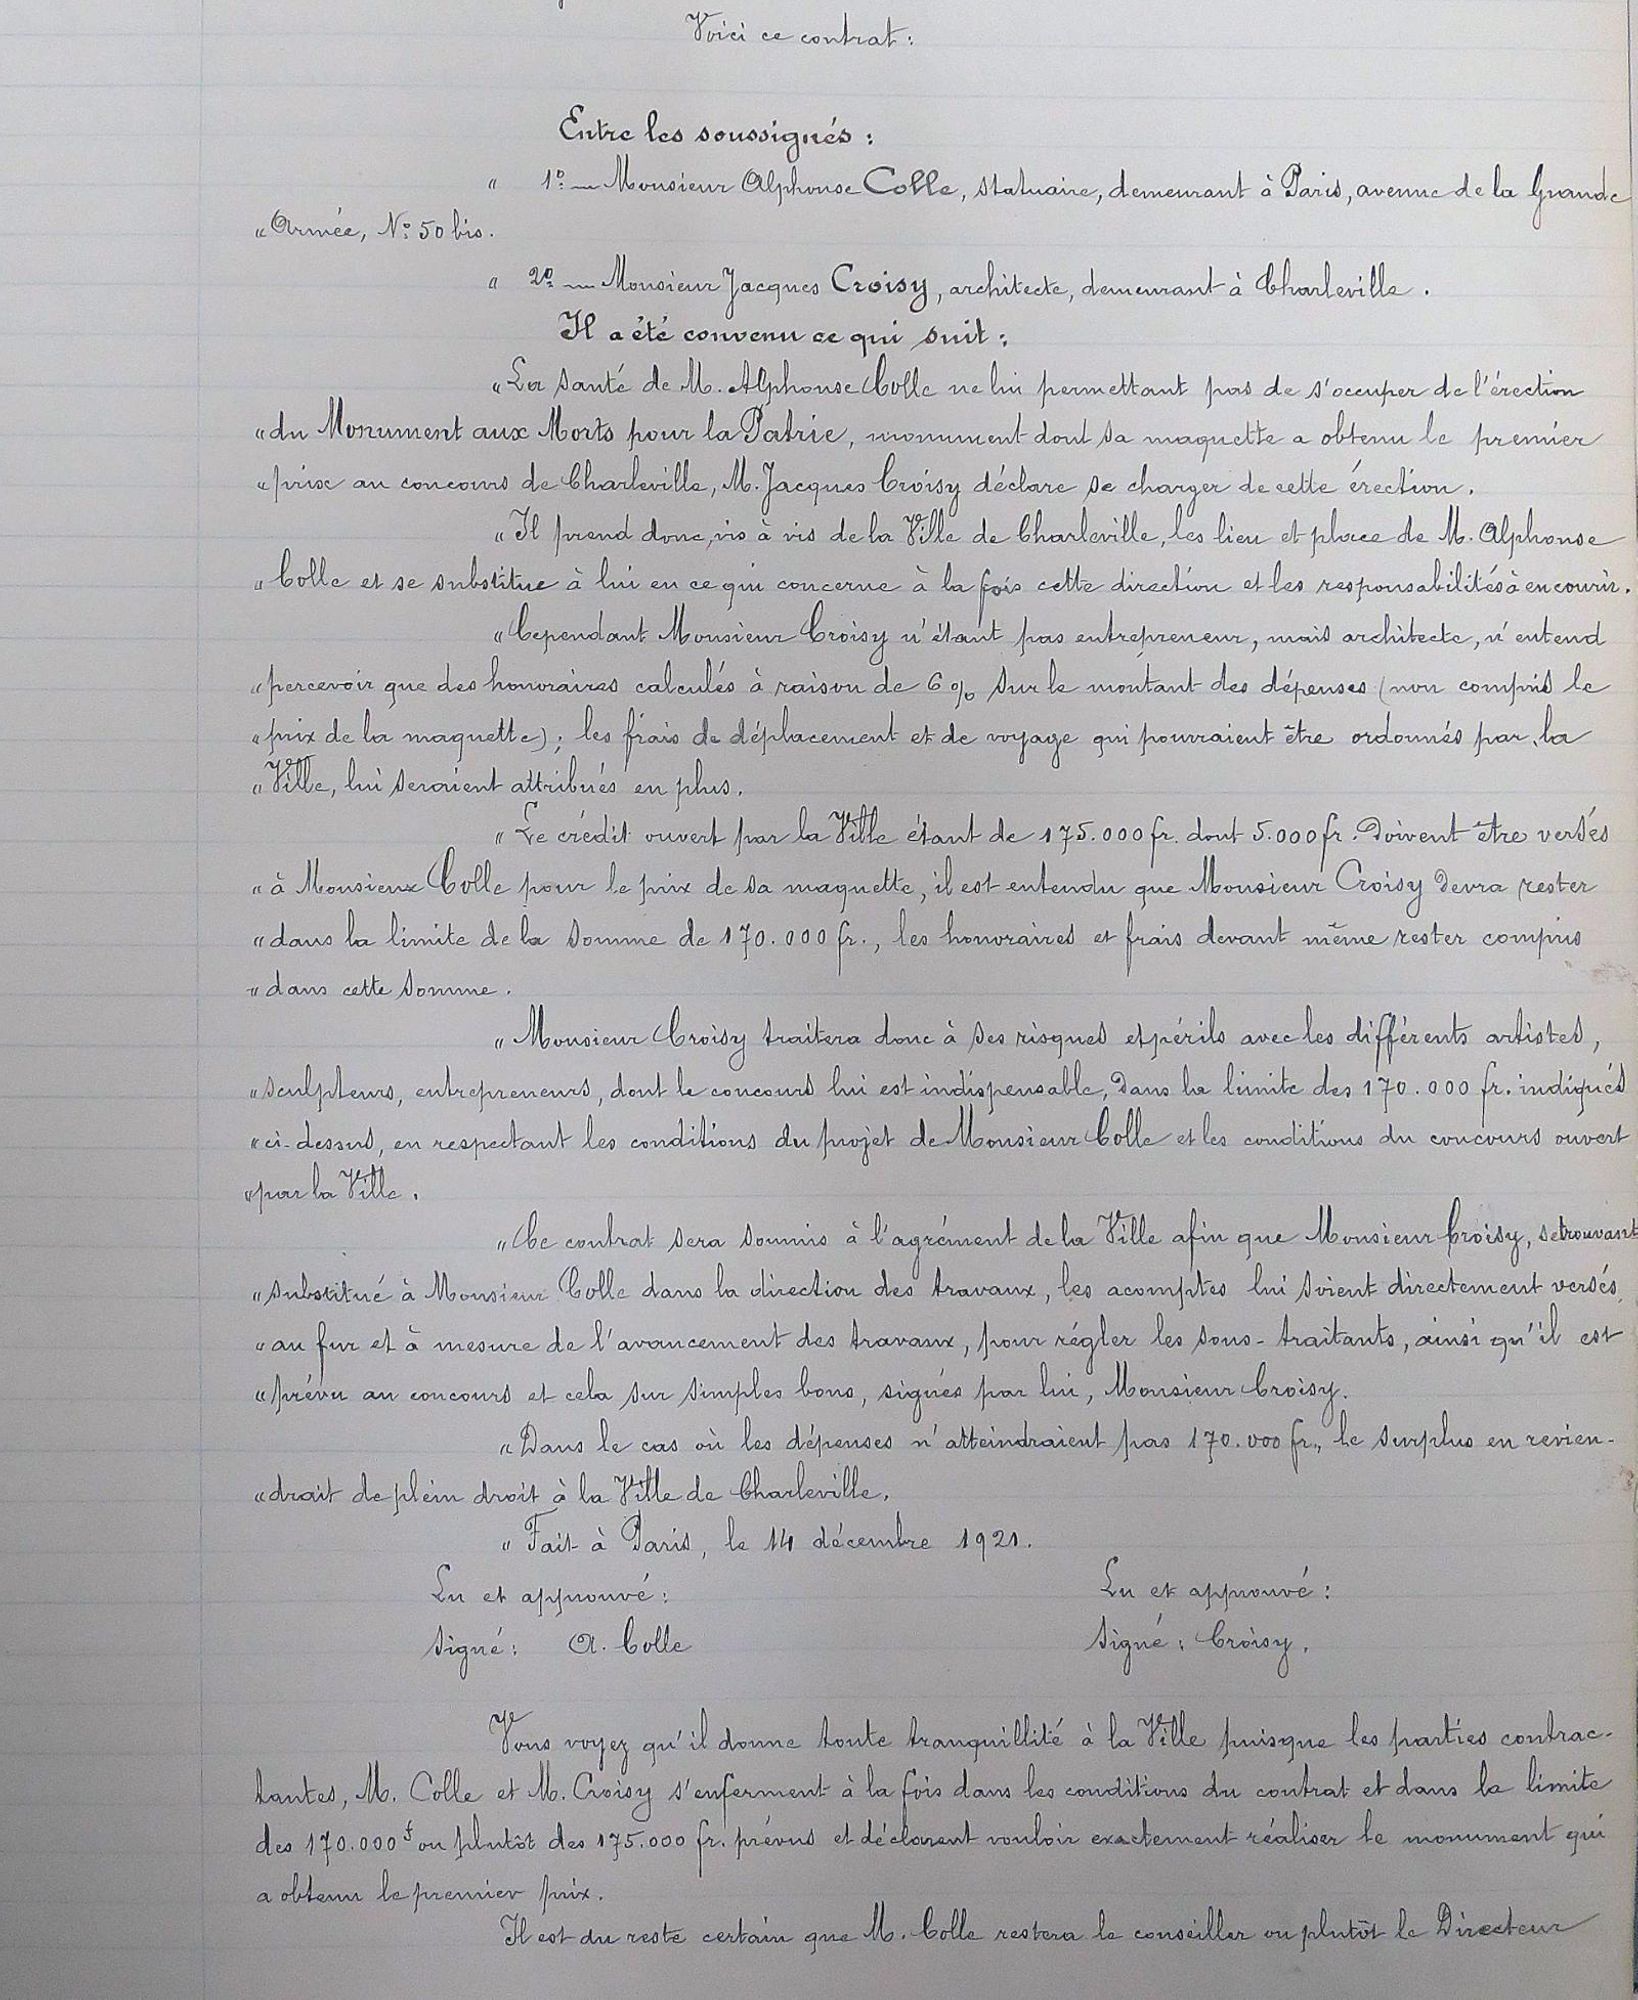 Voici ce contrat :
Entre les soussignés :
" 1º — Monsieur Alphonse Colle, statuaire, demeurant à Paris, avenue de la Grande
" Armée, Nº 50 bis.
" 2º — Monsieur Jacques Croisy, architecte, demeurant à Charleville.
Il a été convenu ce qui suit :
" La santé de M. Alphonse Colle ne lui permettant pas de s'occuper de l'érection
" du Monument aux Morts pour la Patrie, monument dont sa maquette a obtenu le premier
" prix au concours de Charleville, M. Jacques Croisy déclare se charger de cette érection.
" Il prend donc, vis à vis de la Ville de Charleville, les lieu et place de M. Alphonse
" Colle et se substitue à lui en ce qui concerne à la fois cette direction et les responsabilités à encourir.
" Cependant Monsieur Croisy n'étant pas entrepreneur, mais architecte, n'entend
" percevoir que des honoraires calculés à raison de 6 % sur le montant des dépenses (non compris le
" prix de la maquette) ; les frais de déplacement et de voyage qui pourraient être ordonnés par la
" Ville, lui seraient attribués en plus.
" Le crédit ouvert par la Ville étant de 175.000 fr. dont 5.000 fr. doivent être versés
" à Monsieur Colle pour le prix de sa maquette, il est entendu que Monsieur Croisy devra rester
" dans la limite de la somme de 170.000 fr., les honoraires et frais devant même rester compris
" dans cette somme.
" Monsieur Croisy traitera donc à ses risques et périls avec les différents artistes,
" sculpteurs, entrepreneurs, dont le concours lui est indispensable, dans la limite des 170.000 fr. indiqués
" ci-dessus, en respectant les conditions du projet de Monsieur Colle et les conditions du concours ouvert
" par la Ville.
" Ce contrat sera soumis à l'agrément de la Ville afin que Monsieur Croisy, se trouvant
" substitué à Monsieur Colle dans la direction des travaux, les acomptes lui soient directement versés,
" au fur et à mesure de l'avancement des travaux, pour régler les sous-traitants, ainsi qu'il est
" prévu au concours et cela sur simples bons, signés par lui, Monsieur Croisy.
" Dans le cas où les dépenses n'atteindraient pas 170.000 fr., le surplus en revien-
" drait de plein droit à la Ville de Charleville.
" Fait à Paris, le 14 décembre 1921.
Lu et approuvé : Lu et approuvé :
Signé : A. Colle Signé : Croisy.
Vous voyez qu'il donne toute tranquillité à la Ville puisque les parties contrac-
tantes, M. Colle et M. Croisy s'enferment à la fois dans les conditions du contrat et dans la limite
des 170.000 f ou plutôt des 175.000 fr. prévus et déclarent vouloir exactement réaliser le monument qui
a obtenu le premier prix.
Il est du reste certain que M. Colle restera le conseiller ou plutôt le Directeur